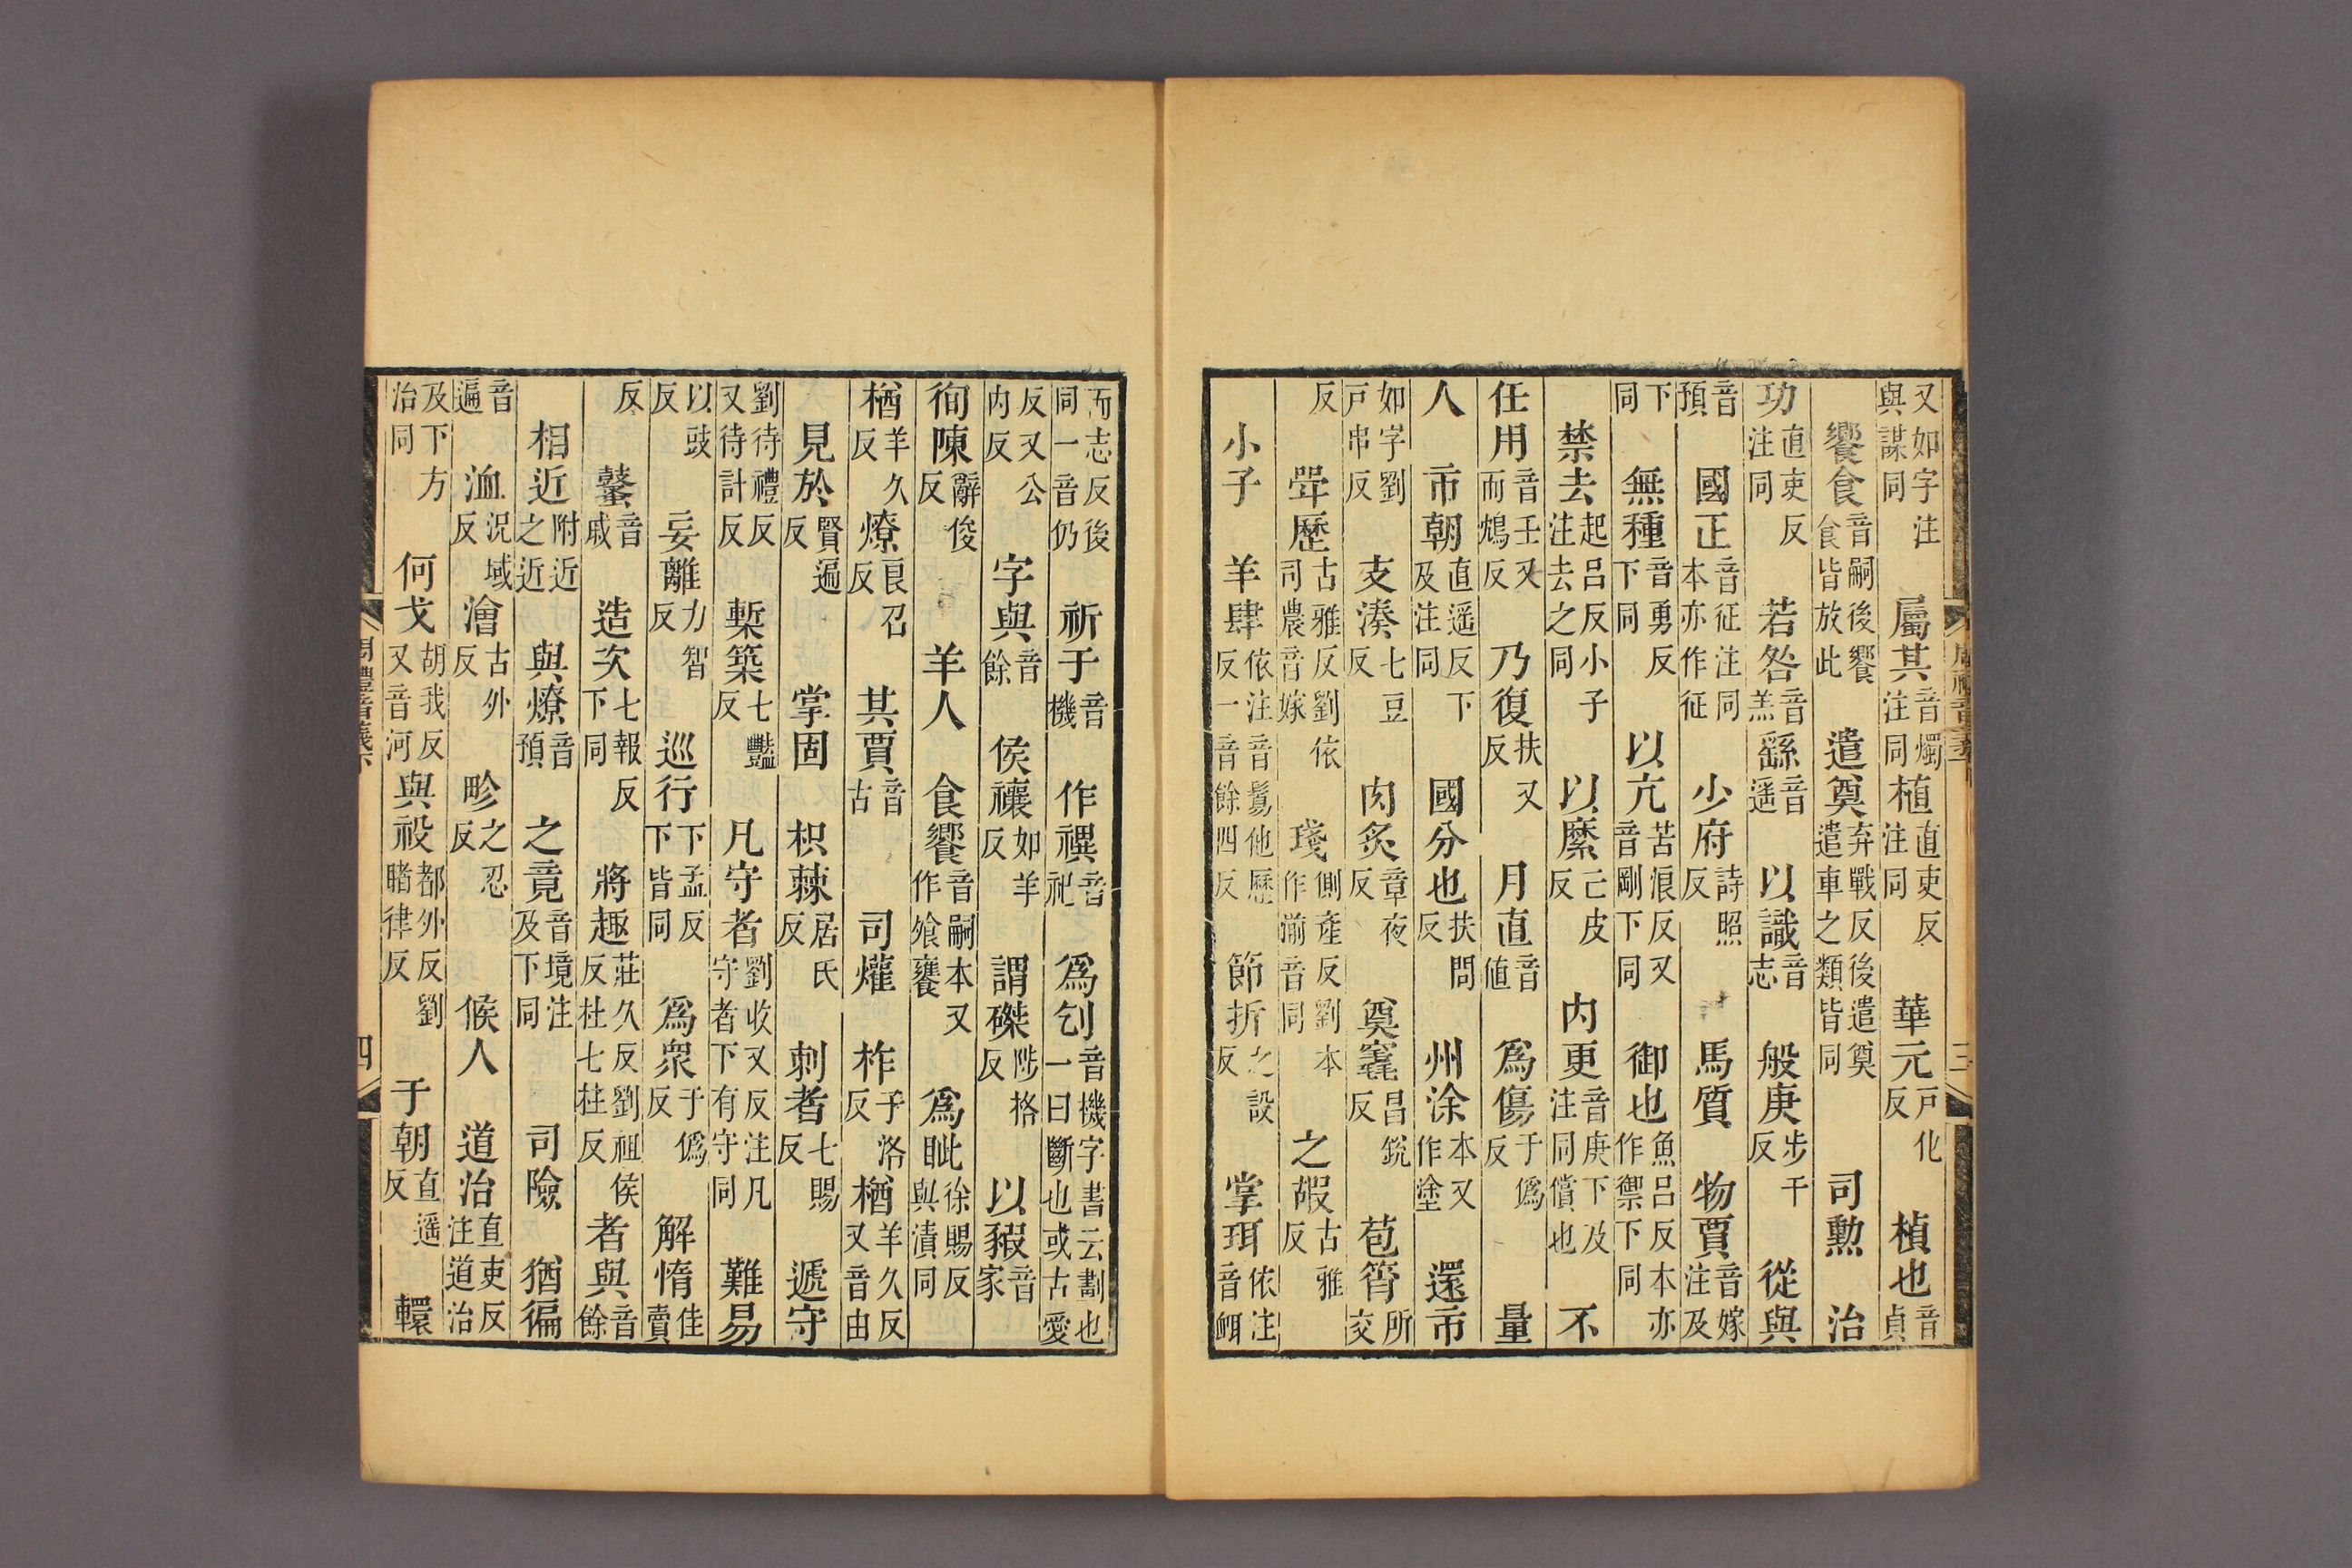 周禮音義下　三
又如字注與謀同　屬其音燭注同　植直吏反注同　華元戶化反　楨也音貞
饗食音嗣後饗食皆放此　遣奠弃戰反後遣奠遣車之類皆同　司勳　治
功直吏反注同　若咎音羔　繇音遥　以識音志　般庚步干反　從與
音預　國正音征注同本亦作征　少府詩照反　馬質　物賈音嫁注及
下同　無種音勇反下同　以亢苦浪反又音剛下同　御也魚吕反本亦作禦下同
禁去起吕反小子注去之同　以縻己皮反　内更音庚下及注同償也　不
任用音壬又而鴆反　乃復扶又反　月直音値　爲傷于僞反　量
人　市朝直遥反下及注同　國分也扶問反　州涂本又作塗　還市
如字劉戸串反　支湊七豆反　肉炙章夜反　奠竁昌銳反　苞筲所交
反　斝歷古雅反劉依司農音嫁　琖側產反劉本作湔音同　之嘏古雅反
小子　羊肆依注音鬄他歷反一音餘四反　節折之設反　掌珥依注音衈
而志反後同一音仍　祈于音機　作禩音祀　爲刉音機字書云劃也一曰斷也或古愛
反又公内反　字與音餘　侯禳如羊反　謂磔陟格反　以豭音家
徇陳辭俊反　羊人　食饗音嗣本又作飧饔　爲眦徐賜反與漬同
槱羊久反　燎良召反　其賈音古　司爟　柞子洛反　槱羊久反又音由
見於賢遍反　掌固　枳棘居氏反　刺者七賜反　遞守
劉待禮反又待計反　塹築七豔反　凡守者劉收又反注凡守者下有守同　難易
以豉反　妄離力智反　巡行下孟反下皆同　爲衆于僞反　解惰佳賣
反　鼜音戚　造次七報反下同　將趣莊久反劉祖侯反杜七柱反　者與音餘
相近附近之近　與燎音預　之竟音境注及下同　司險　猶徧
音遍　洫況域反　澮古外反　畛之忍反　候人　道治直吏反注道治
及下方治同　何戈胡我反又音河　與祋都外反劉睹律反　于朝直遥反　轘
周禮音義下　四